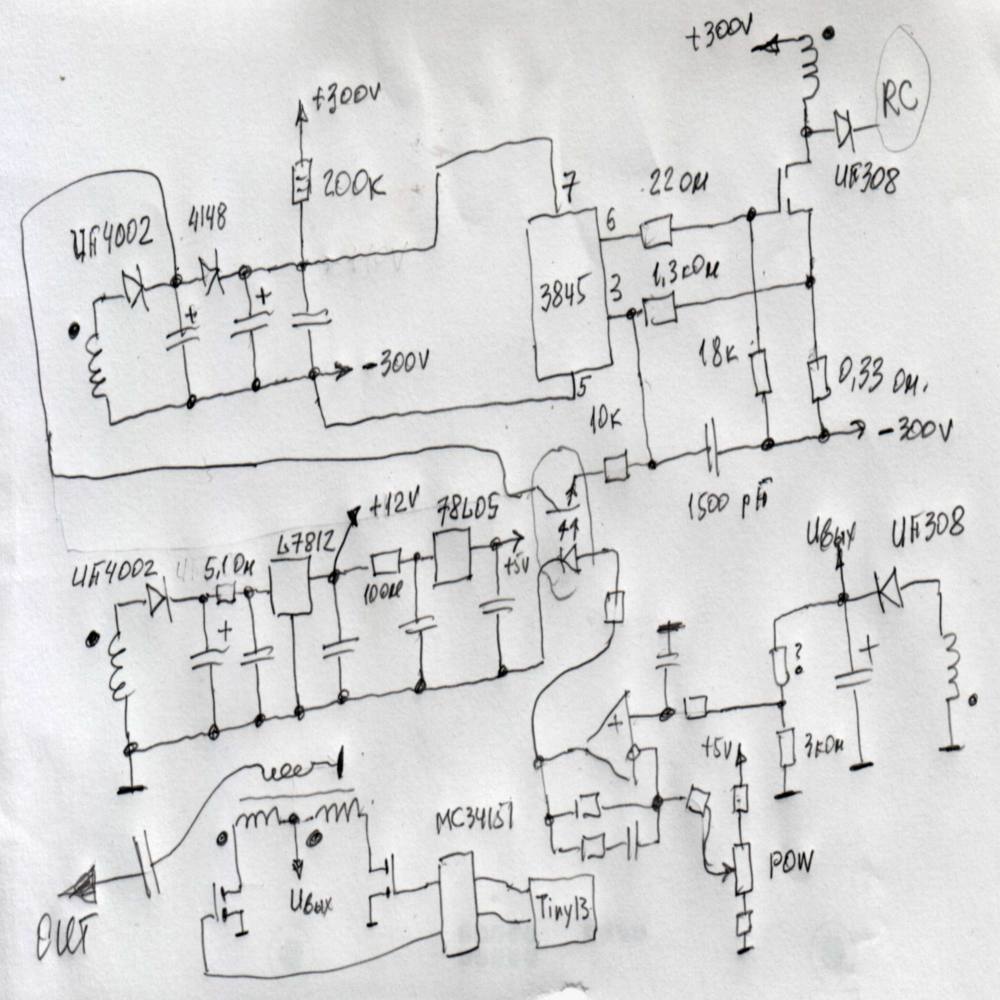 +300V
RC
+300V
200K
7
22 Ом
UF308
UF4002
4148
6
+
+
3845
3
1,3кОм
-300V
18к
0,33 Ом.
5
10к
-300V
1500 pF
+12V
78L05
L7812
UF4002
5,1 Ом
100м
+5V
Uвых
UF308
+
?
+
+
+5V
3кОм
MC34151
POW
Uвых
Tiny13
OUT